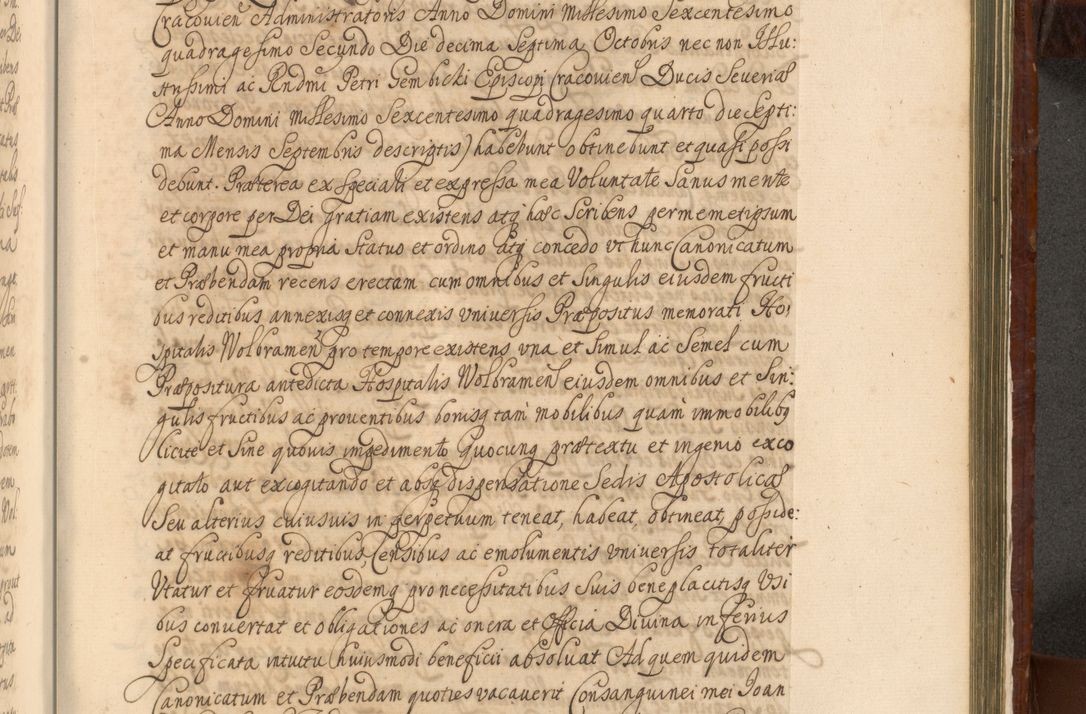 Cracovień Administratoris Anno Domini Millesimo Sexcentesimo
quadragesimo Secundo Die decima Septima Octobris nec non Illu:
strissimi ac Rndmi Petri Gembicki Episcopi Cracovień Ducis Severiæ
Anno Domini Millesimo Sexcentesimo quadragesimo quarto die Septi:
ma Mensis Septembris descriptis) habebunt obtinebunt et quasi possi
debunt. Præterea ex speciali et expressa mea Voluntate Sanus mente
et corpore per Dei gratiam existens atq hæc Scribens per memetipsum
et manu mea propria Statuo et ordino atq concedo vt hunc Canonicatum
et Præbendam recens erectam cum omnibus et Singulis eiusdem fructi
bus reditibus annexisq et connexis vniversis Præpositus memorati Ho,
spitalis Wolbrameń pro tempore existens vna et simul ac Semel cum
Præpositura antedicta Hospitalis Wolbrameń eiusdem omnibus et Sin:
gulis fructibus ac proventibus bonisq tam mobilibus quam immobilibq
licite et Sine quovis impedimento Quocunq prætextu et ingenio exco
gitato aut excogitando et absq dispensatione Sedis Apostolicæ
Seu alterius cuiusuis in perpetuum teneat, habeat, obtineat, posside:
at fructibusq reditibus, Censibus ac emolumentis vniversis totaliter
Vtatur et fruatur eosdemq pro necessitatibus Suis beneplacitisq Vsi
bus convertat et obligationes ac onera et Officia Divina inferius
Specificata intuitu huiusmodi beneficii absoluat Ad quem quidem
Canonicatum et Præbendam quoties vacaverit Consanguinei mei Ioan